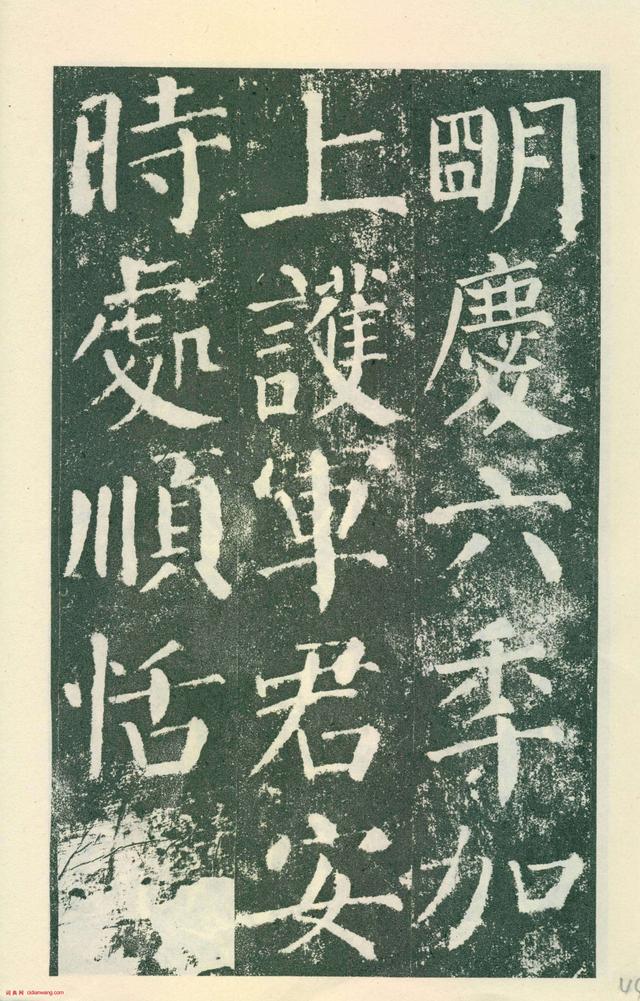 朙慶六秊加
上護軍君安
時處順恬
词典网：cidianwang.com